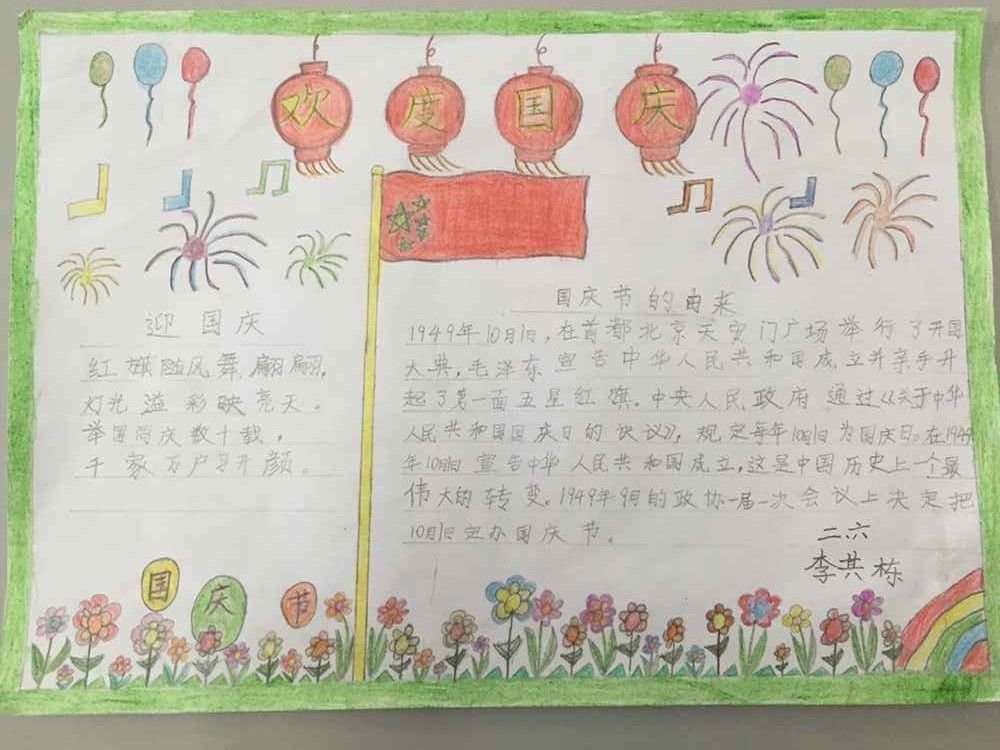 欢度国庆
迎国庆
红旗随风舞翩翩,
灯光溢彩映亮天。
举国同庆数十载,
千家万户习开颜。
国庆节
国庆节的由来
1949年10月1日,在首都北京天安门广场举行了开国
大典,毛泽东宣告中华人民共和国成立并亲手升
起了第一面五星红旗。中央人民政府通过《关于中华
人民共和国国庆日的决议》,规定每年10月1日为国庆日。在1949
年10月1日宣告中华人民共和国成立,这是中国历史上一个最
伟大的转变。1949年9月的政协一届一次会议上决定把
10月1日定办国庆节。
二六
李共栋